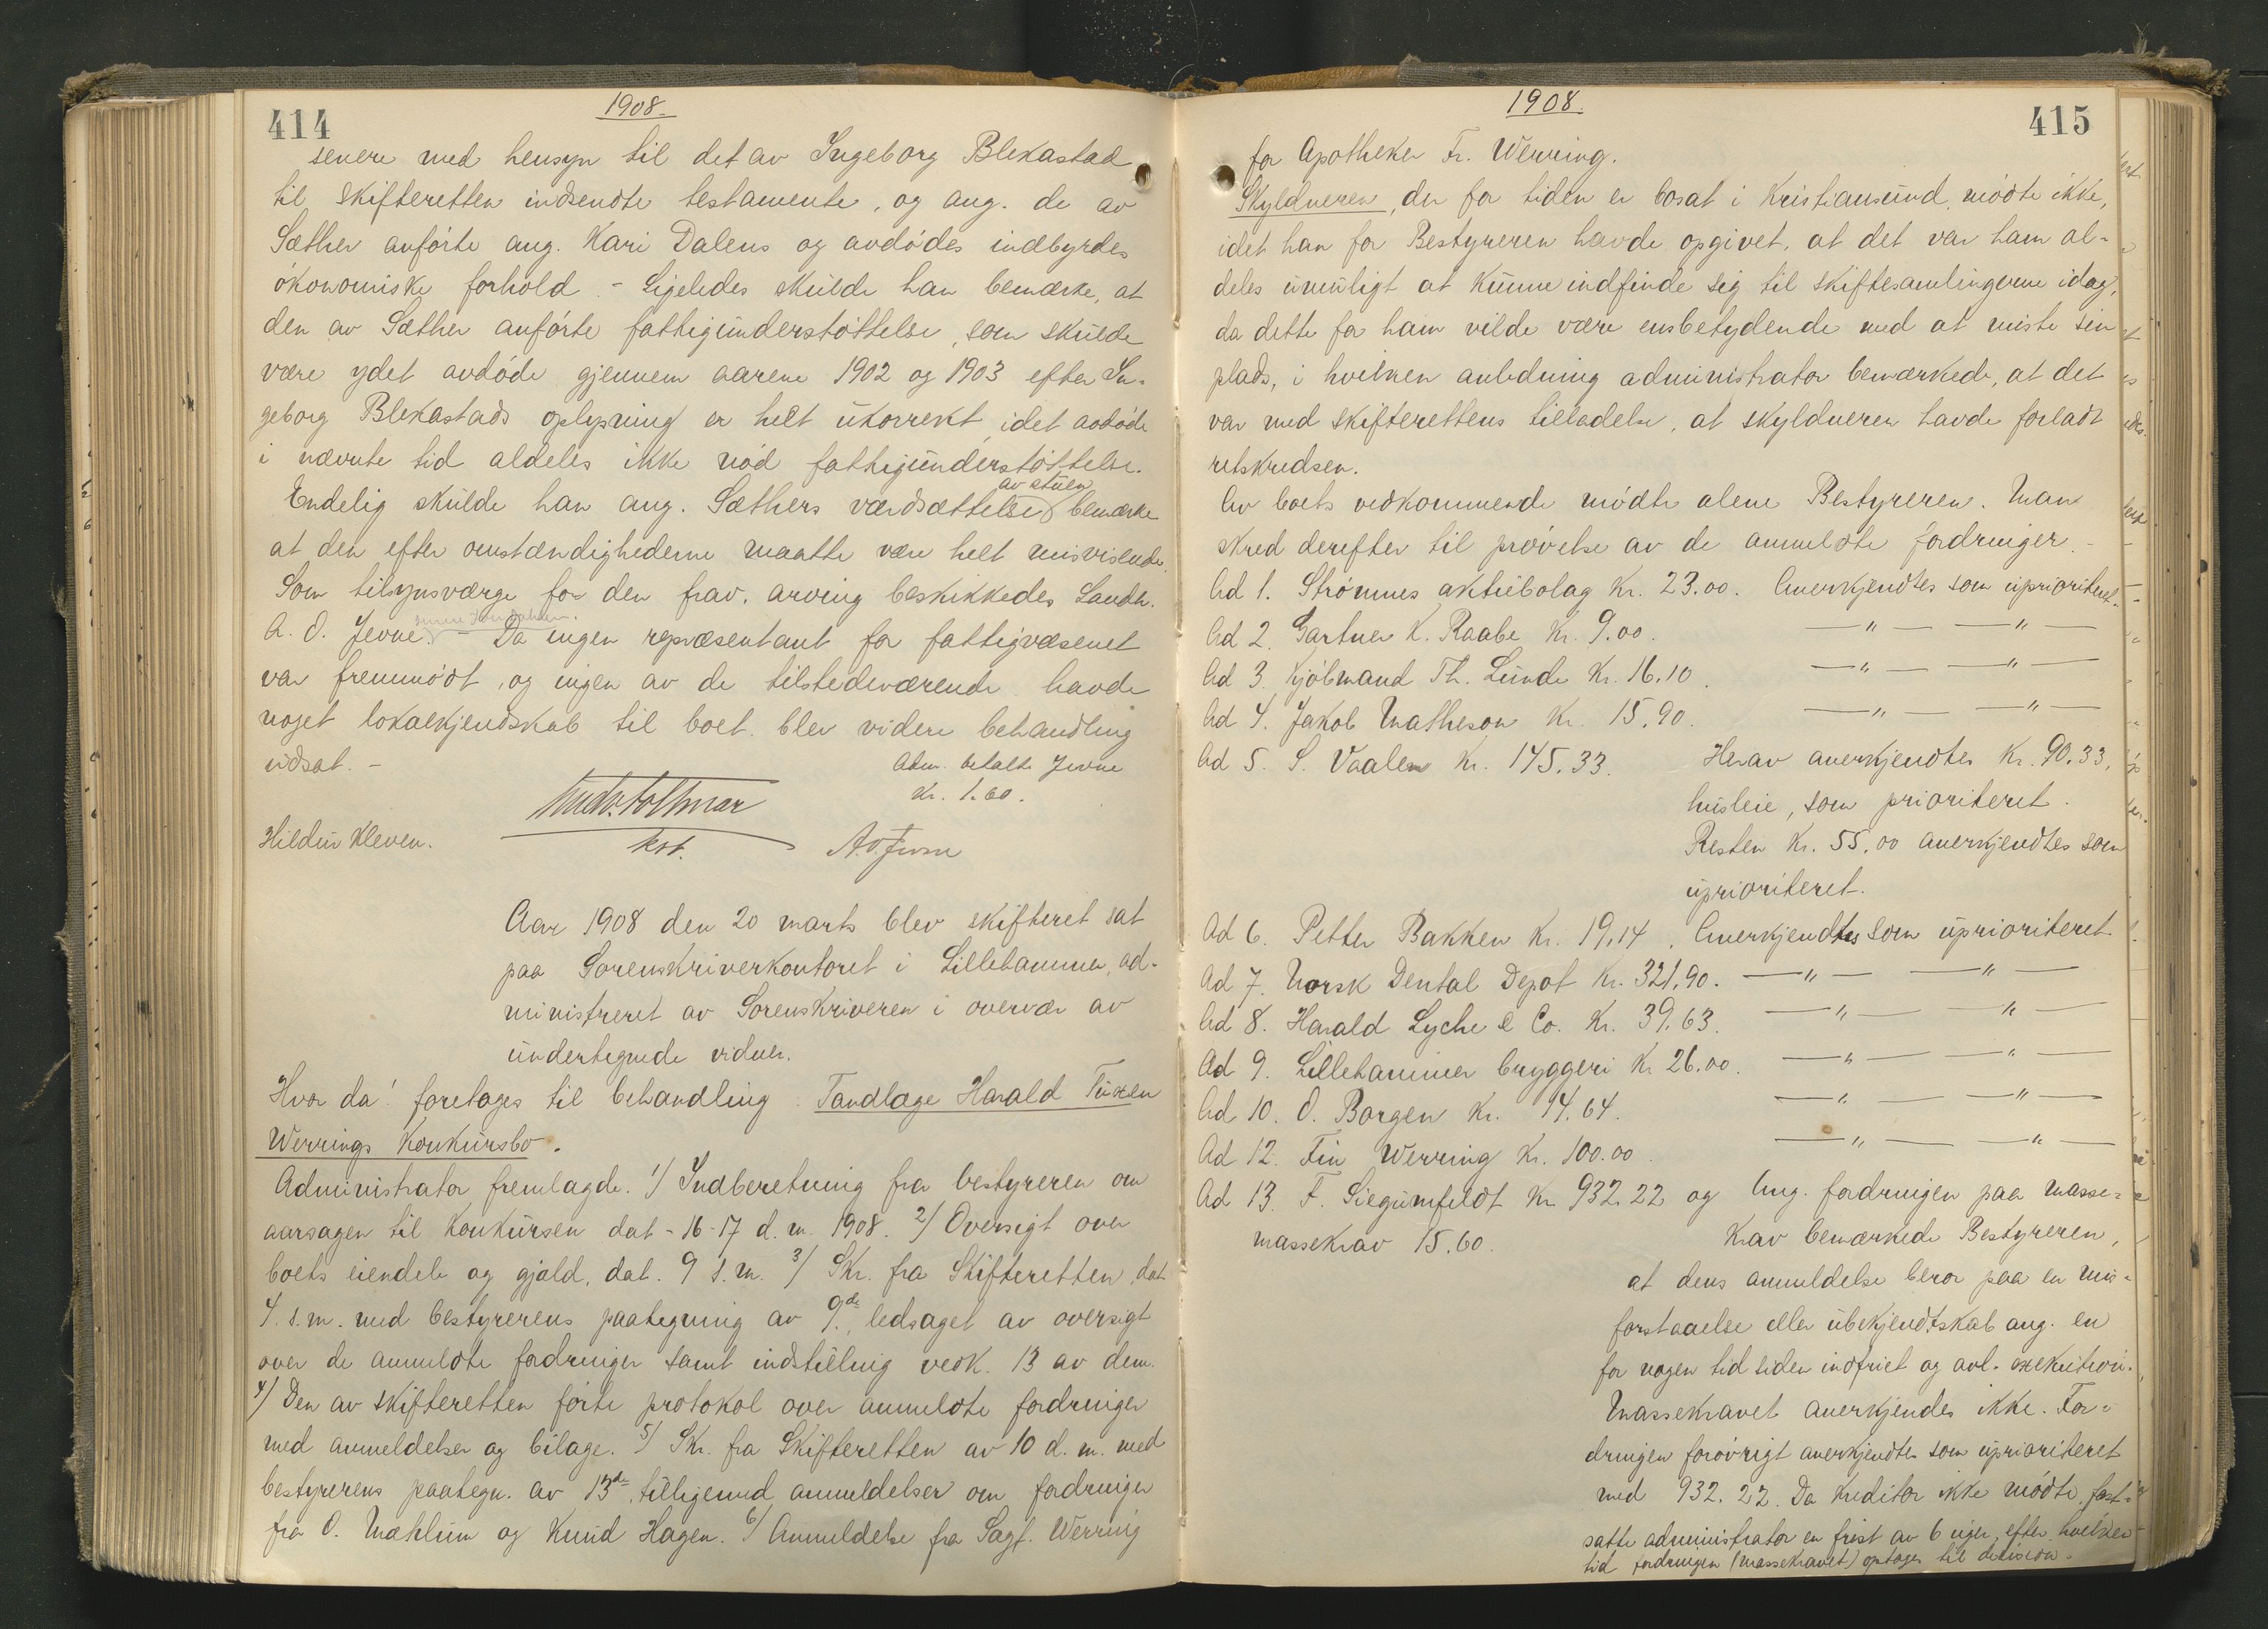 414
1908.
senere med hensyn til det av Ingeborg Blekastad
til skifteretten indsendte testamente, og ang. de av
Sæther anførte ang. Kari Dalens og avdødes indbyrdes
økonomiske forhold. - Ligeledes skulde han bemærke, at
den av Sæther anførte fattigunderstøttelse, som skulde
være ydet avdøde gjennem aarene 1902 og 1903 efter In-
geborg Blekastads oplysning er helt ukorrekt, idet avdøde
i nævnte tid aldeles ikke nød fattigunderstøttelse.
av stuen
Endelig skulde han ang. Sæthers værdsættelse bemærke
at den efter omstændighederne maatte være helt misvisende.
Som tilsynsværge for den frav. arving beskikkedes Landh.
A. O. Jevne. - Da ingen repræsentant for fattigvæsenet
var fremmødt, og ingen av de tilstedeværende havde
noget lokalkjendskab til boet. blev videre behandling
udsat. -
Adm. betalte Jevne
Kr. 1.60.
Hildur Kleven.
kst.
A. O. Jevne
Aar 1908 den 20 marts blev skifteret sat
paa Sorenskriverkontoret i Lillehammer, ad-
ministreret av Sorenskriveren i overvær av
undertegnede vidner.
Hvor da! foretages til behandling: Tandlæge Harald Tuxen
Werrings konkursbo.
Administrator fremlagde. 1/ Indberetning fra bestyreren om
aarsagen til konkursen dat - 16-17 d. m. 1908. 2/ Oversigt over
boets eiendele og gjæld, dat. 9 s. m. 3/ Skr. fra Skifteretten, dat
4. s. m. med bestyrerens paategning av 9de, ledsaget av oversigt
over de anmeldte fordringer samt indstilling vedk. 13 av dem.
4/ Den av skifteretten førte protokol over anmeldte fordringer
med anmeldelser og bilage. 5/ Skr. fra Skifteretten av 10 d. m. med
bestyrerens paategn. av 13de, tilligemed anmeldelser om fordringer
fra O. Mæhlum og Knud Hagen. 6/ Anmeldelse fra Sagf. Werring
415
1908.
for Apotheker Fr. Werring.
Skyldneren, der for tiden er bosat i Kristiansund, mødte ikke,
idet han for Bestyreren havde opgivet, at det var ham al-
deles umuligt at kunne indfinde sig til skiftesamlingerne idag,
da dette for ham vilde være ensbetydende med at miste sin
plads, i hvilken anledning administrator bemærkede, at det
var med skifterettens tilladelse, at skyldneren havde forladt
retskredsen.
Av boets vedkommende mødte alene Bestyreren. Man
skred derefter til prøvelse av de anmeldte fordringer. -
Ad 1. Strømmes aktiebolag Kr. 23.00. Anerkjendtes som uprioriteret.
Ad 2. Gartner K. Raabe Kr. 9.00. — " — — " —
Ad 3. Kjøbmand Th. Lunde Kr. 16.10. — " — — " —
Ad 4. Jakob Matheson Kr. 15.90. — " — — " —
Ad 5. S. Vaalen Kr. 145.33. Herav anerkjendtes Kr. 90.33,
husleie, som prioriteret.
Resten Kr. 55.00 anerkjendtes som
uprioriteret.
Ad 6. Petter Bakken Kr. 19,14. Anerkjendtes som uprioriteret
Ad 7. Norsk Dental Depot Kr. 321,90. — " — — " —
Ad 8. Harald Lyche & Co. Kr. 39.63. — " — — " —
Ad 9. Lillehammer bryggeri Kr 26.00. — " — — " —
Ad 10. O. Borgen Kr. 14.64. — " — — " —
Ad 12. Fin Werring Kr. 100.00. — " — — " —
Ad 13. F. Siegumfeldt Kr 932.22 og Ang. fordringen paa masse-
massekrav 15.60. krav bemærkede Bestyreren,
at dens anmeldelse beror paa en mis-
forstaaelse eller ubekjendtskab ang. en
for nogen tid siden indfriet og avl. exekution.
Massekravet anerkjendes ikke. For-
dringen forøvrigt anerkjendtes som uprioriteret
med 932.22. Da kreditor ikke mødte, fast-
satte administrator en frist av 6 uger, efter hvilken
tid fordringen (massekravet) optages til decision.